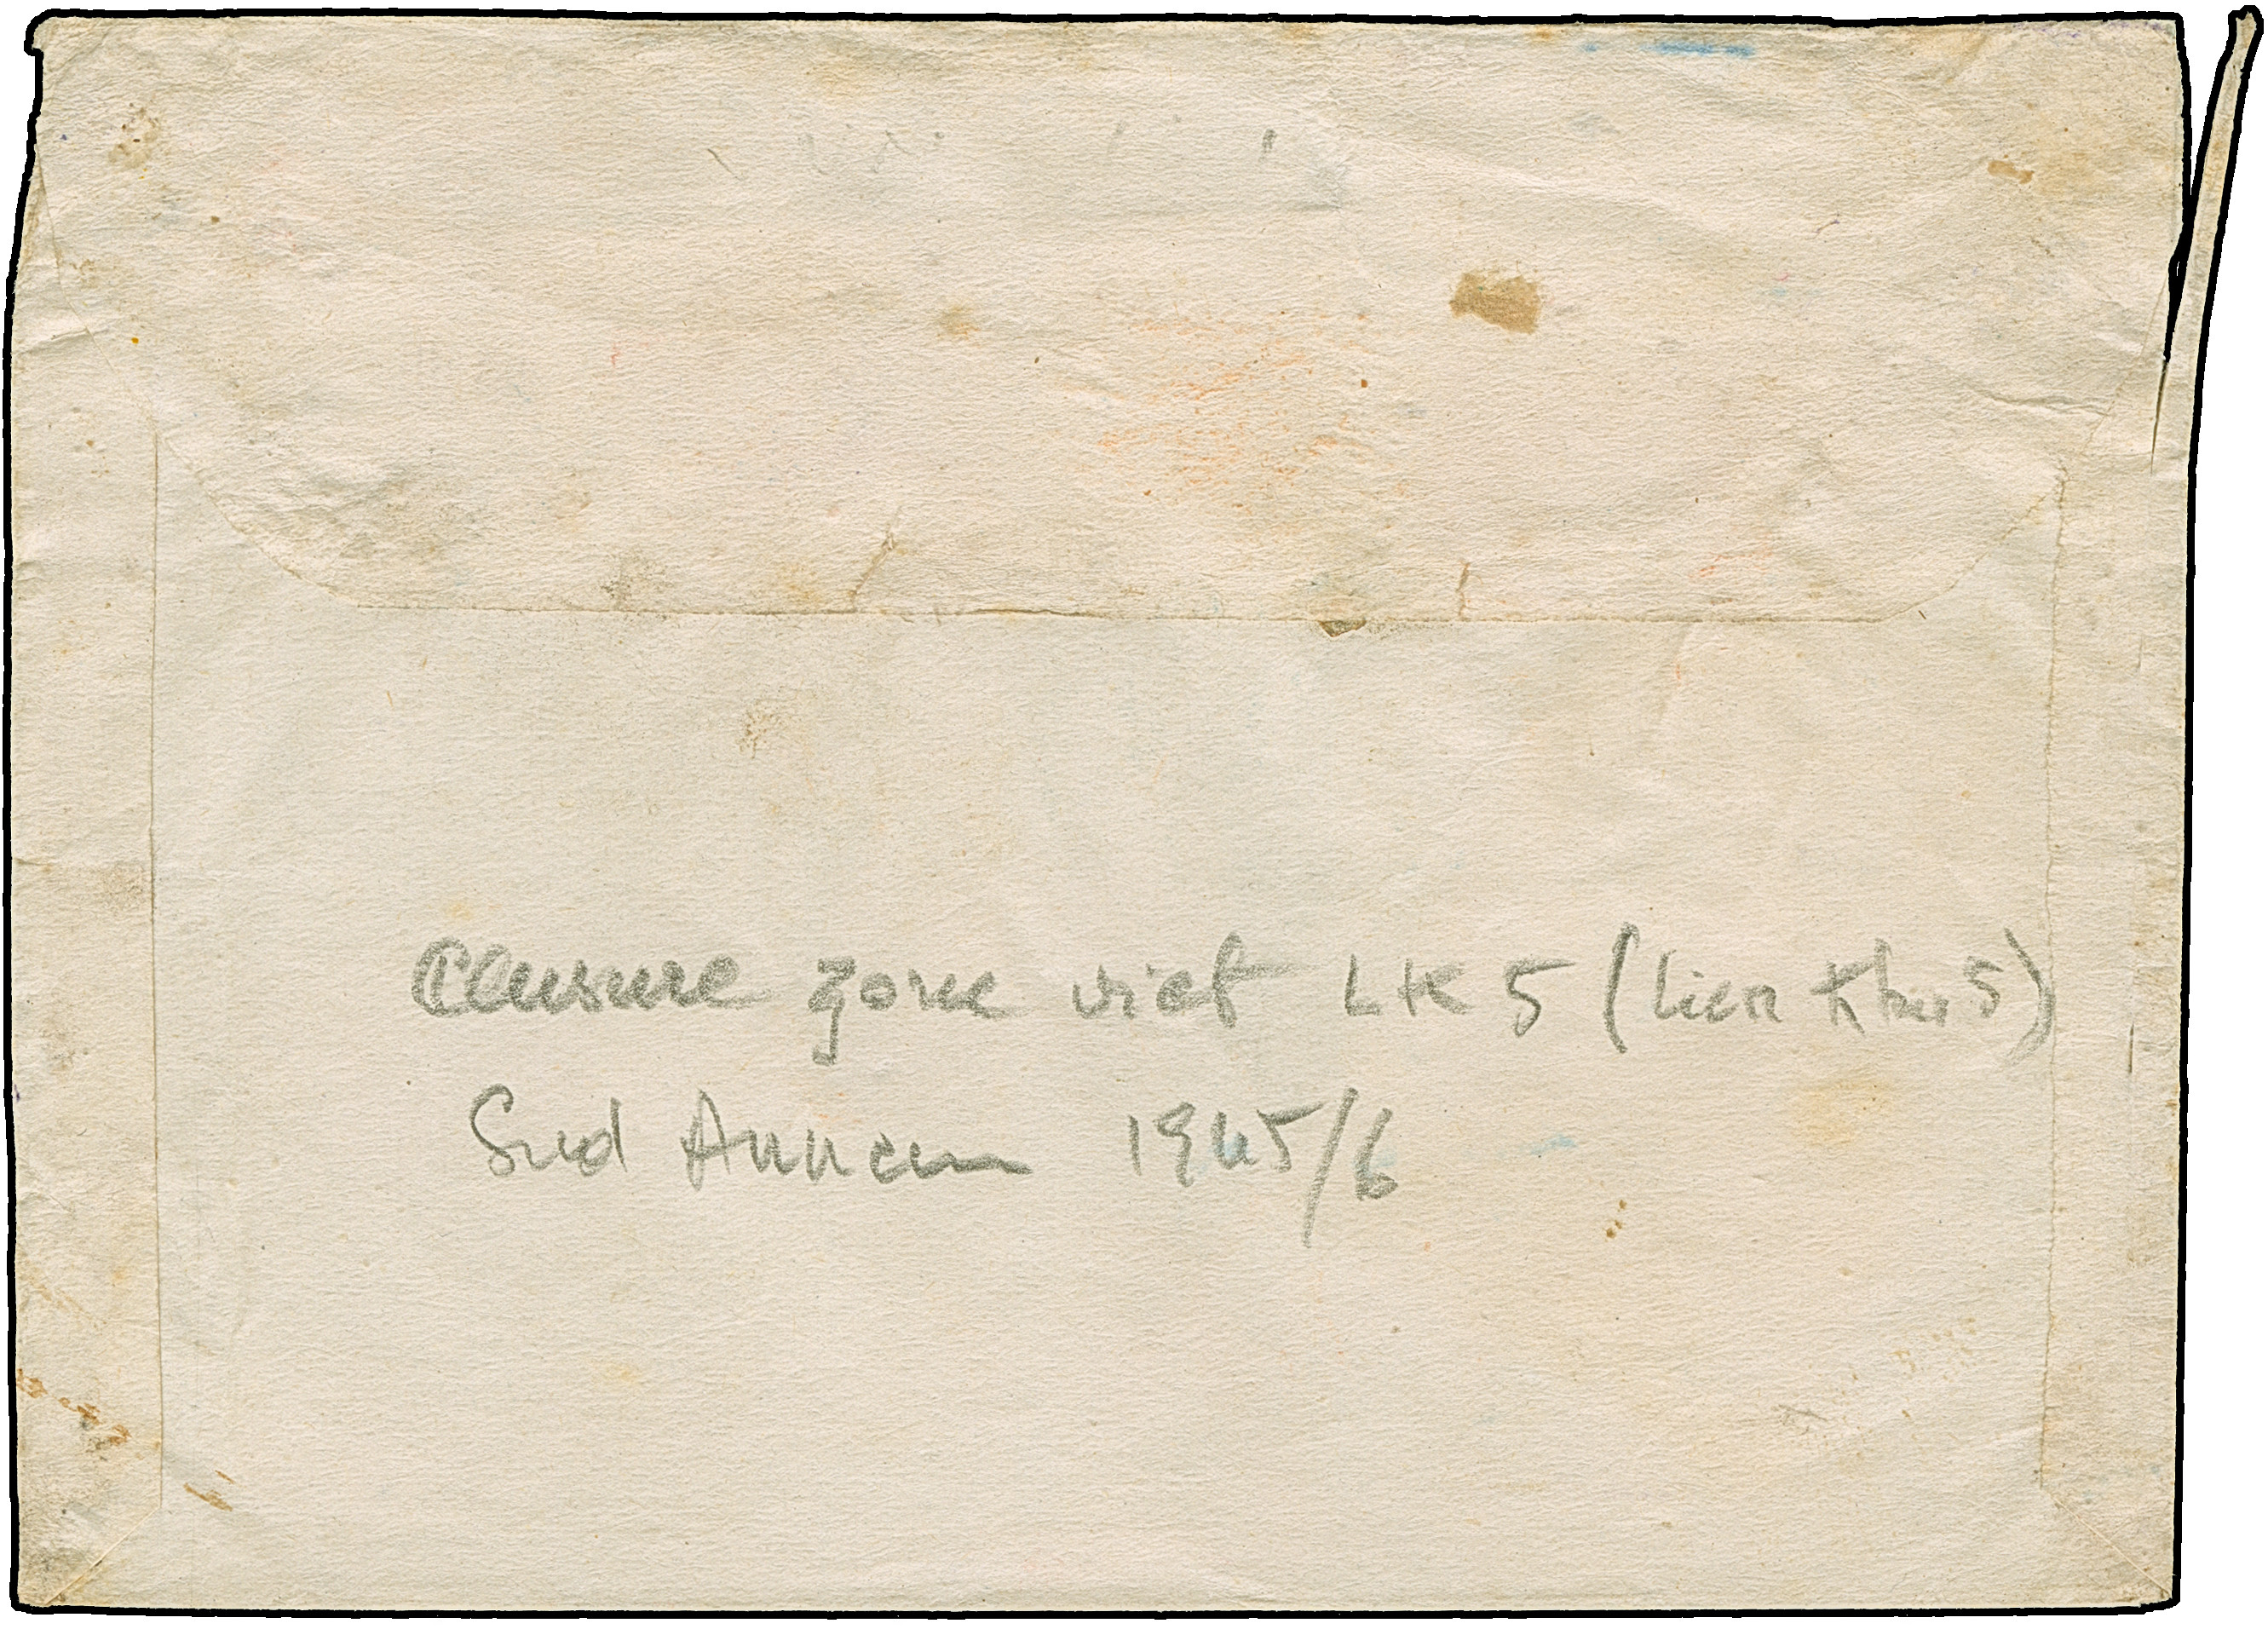 Censure zone viet LK 5 (Lien Khu 5)
Sud Annam 1945/6